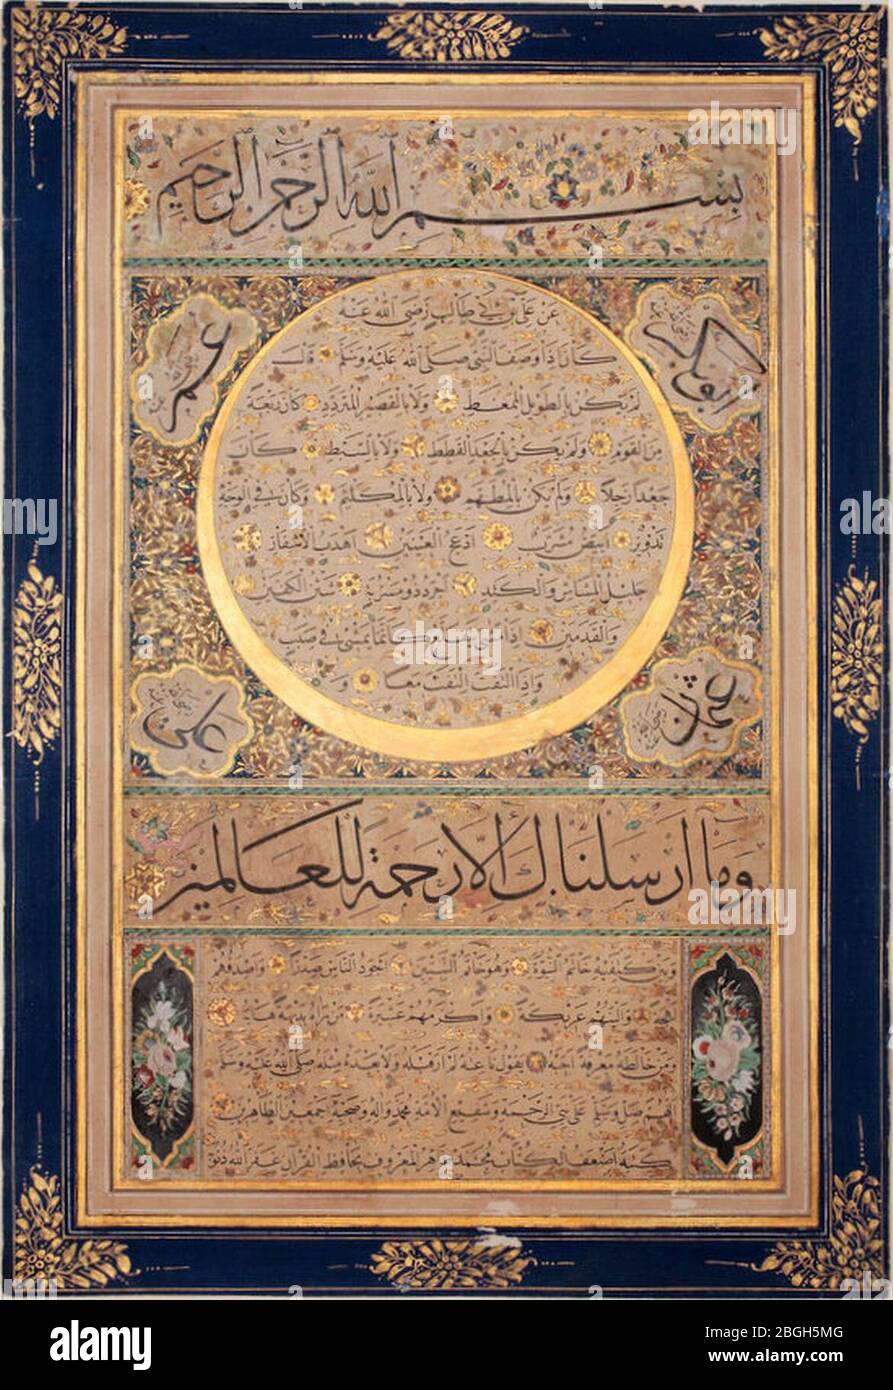 بسم الله الرحمن الرحيم
ابوبكر
عمر
عن علي بن ابي طالب رضي الله عنه
كان اذا وصف النبي صلى الله عليه وسلم قال
لم يكن بالطويل الممغط ولا بالقصير المتردد كان ربعة
من القوم ولم يكن بالجعد القطط ولا بالسبط كان
جعدا رجلا ولم يكن بالمطهم ولا بالمكلثم وكان في الوجه
تدوير ابيض مشرب ادعج العينين اهدب الاشفار
جليل المشاش والكتد اجرد ذو مسربة شثن الكفين
والقدمين اذا مشى كانما يمشي في صبب
واذا التفت التفت معا و
عثمان
علي
وما ارسلناك الا رحمة للعالمين
وبين كتفيه خاتم النبوة وهو خاتم النبيين اجود الناس صدرا واصدقهم
لهجة والينهم عريكة واكرمهم عشيرة من رآه بديهة هابه
ومن خالطه معرفة احبه يقول ناعته لم ار قبله ولا بعده مثله صلى الله عليه وسلم
اللهم صل وسلم على نبي الرحمة وشفيع الامة محمد وآله وصحبه اجمعين الطاهرين
كتبه اضعف الكتاب محمد المعروف بحافظ القرآن غفر الله ذنوبه
alamy
Image ID: 2BGH5MG
www.alamy.com